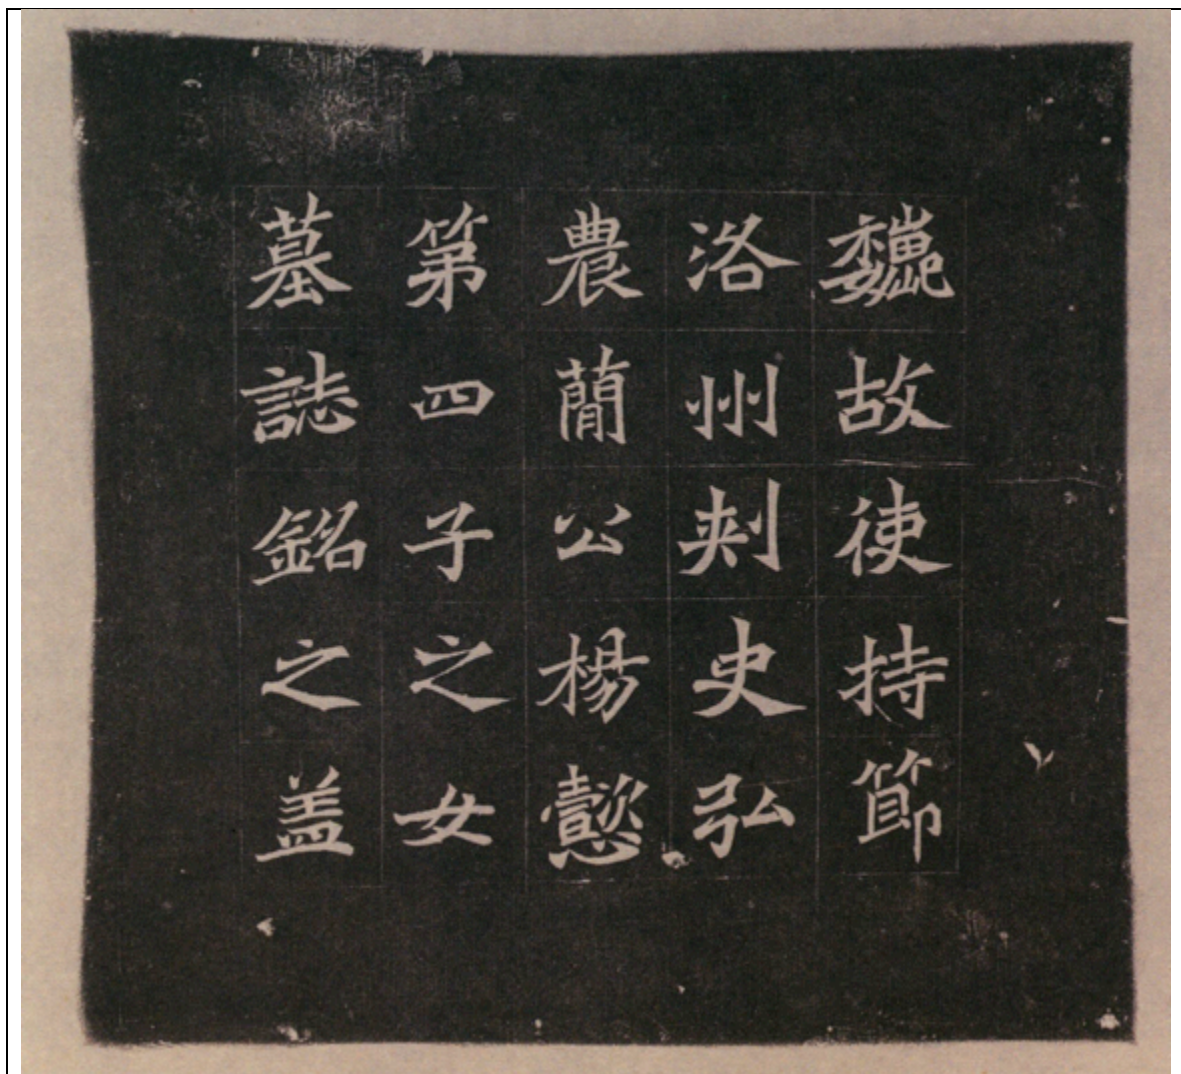 魏故使持節
洛州刾史弘
農蕳公楊懿
第四子之女
墓誌銘之盖